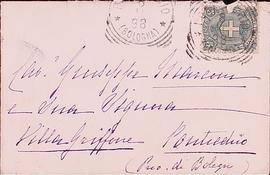 98
(BOLOGNA)
Cav. Giuseppe Marconi
e Sua Signora
Villa Griffone Pontecchio
(Prov. di Bologna)